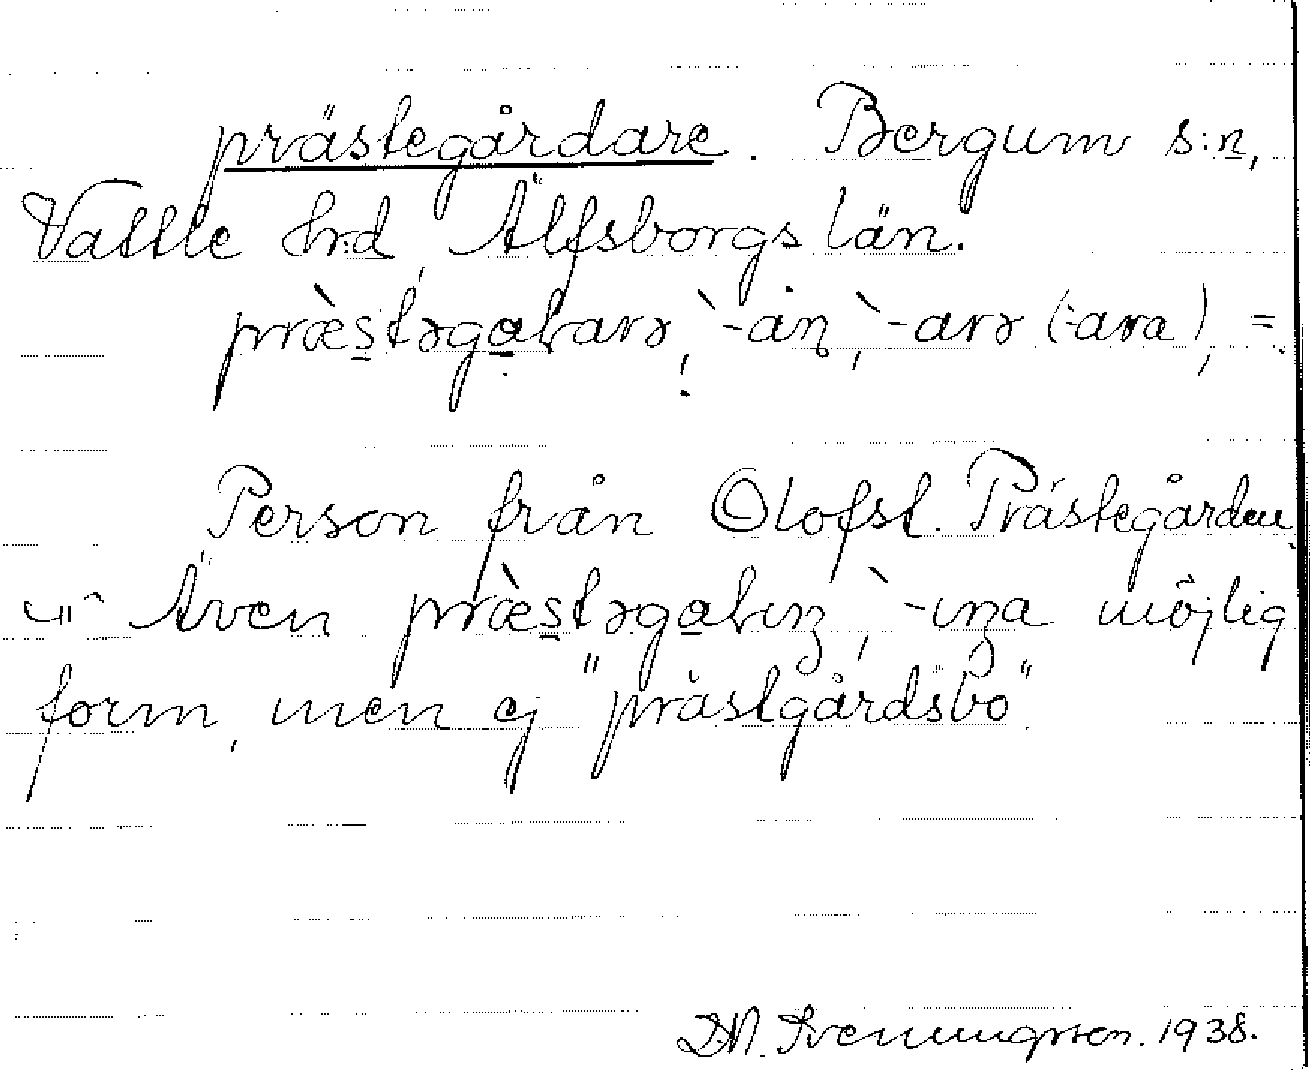 prästegårdare. Bergum s:n,
Vättle hrd, Älfsborgs län.
præ̀stəgaɫarə, `-an, `-arə (-ara), =.
Person från Olofst. Prästegården.
Även præ̀stəgaɫıŋ, `-ıŋa möjlig
form, men ej "prästgårdsbo".
Svenungsson. 1938.